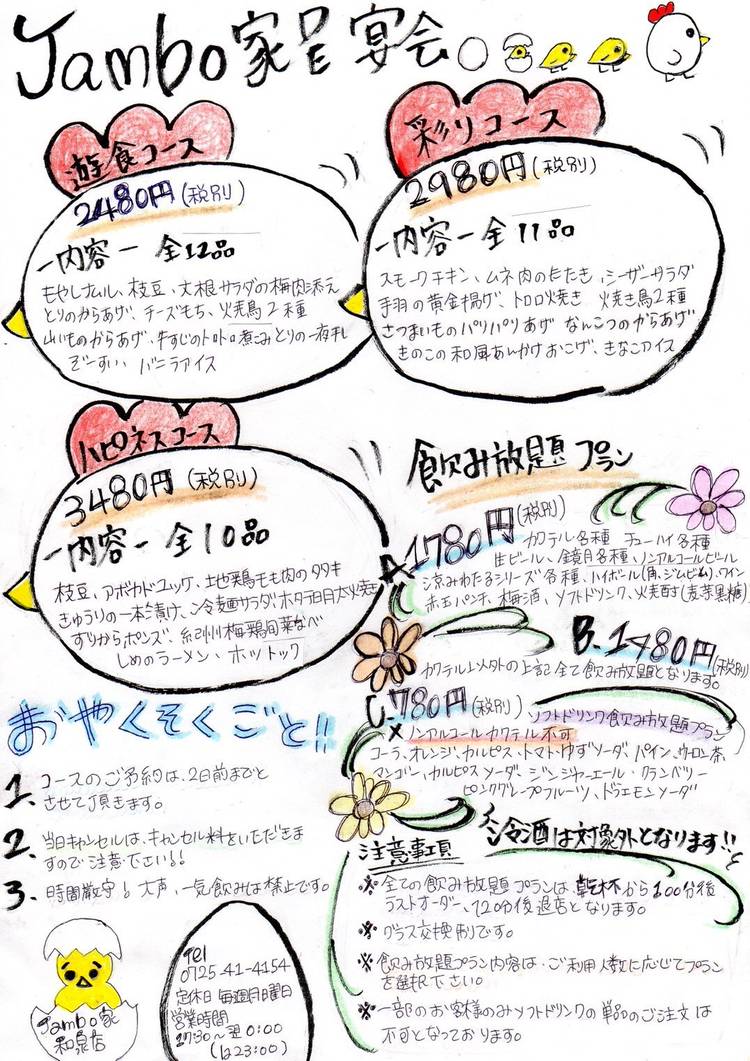 Jambo家 宴会
遊食コース
2480円(税別)
ー内容ー 全12品
もやしナムル、枝豆、大根サラダの梅肉添え
とりのからあげ、チーズもち、火焼鳥2種
山いものからあげ、牛すじのトロトロ煮こみ とりの一夜干し
ぞーすい、バニラアイス
彩りコース
2980円(税別)
ー内容ー 全11品
スモークチキン、ムネ肉のたたき、シーザーサラダ
手羽の黄金揚げ、トロロ焼き 焼き鳥2種
さつまいものパリパリあげ なんこつのからあげ
きのこの和風あんかけおこげ、きなこアイス
ハピネスコース
3480円(税別)
ー内容ー 全10品
枝豆、アボカドユッケ、土地鶏もも肉のタタキ
きゅうりの一本漬け、冷麺サラダ ホタテ明太焼き
ずりからポンズ、紀州梅鶏旬菜なべ
しめのラーメン、ホットック
飲み放題プラン
A.1780円(税別)
カクテル各種 チューハイ各種
生ビール、鏡月各種、ノンアルコールビール
涼みわたるシリーズ各種、ハイボール(角、ジムビーム)、ワイン
赤玉パンチ、梅酒、ソフトドリンク、火焼酎(麦芋黒糖)
B.1480円(税別)
カクテル以外の上記全て飲み放題となります。
C.780円(税別) ソフトドリンク飲み放題プラン
×ノンアルコールカクテル不可
コーラ、オレンジ、カルピス、トマト、ゆずソーダ、パイン、ウーロン茶
マンゴー、カルピスソーダ、ジンジャーエール、クランベリー
ピンクグレープフルーツ、ドラエモンソーダ
冷酒は対象外となります!!
おやくそくごと!!
1.コースのご予約は、2日前までと
させて頂きます。
2.当日キャンセルは、キャンセル料をいただきま
すので注意下さい!!
3.時間厳守!大声、一気飲みは禁止です。
注意事項
※全ての飲み放題プランは、乾杯から100分後
ラストオーダー、120分後退店となります。
※グラス交換制です。
※飲み放題プラン内容は、ご利用人数に応じてプラン
を選択下さい。
※一部のお客様のみソフトドリンクの単品のご注文は
不可となっております。
Jambo家
和泉店
Tel
0725-41-4154
定休日 毎週月曜日
営業時間
17:30〜翌0:00
(Lo23:00)